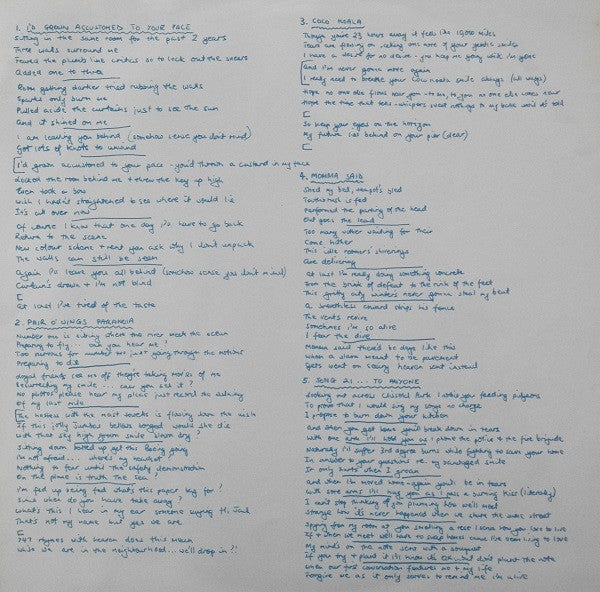 1. I'D GROWN ACCUSTOMED TO YOUR PACE
Sitting in the same room for the past 2 years
Three walls surround me
Added one to three
Room getting darker tried rubbing the walls
Sparks only burn me
Pulled aside the curtains just to see the sun
And it shined on me
I am leaving you behind (somehow sense you don't mind)
Got lots of knots to unwind
I'd grown accustomed to your pace - you'd thrown a custard in my face
Locked the room behind me & threw the key up high
Even took a bow
Wish I hadn't straightened to see where it would lie
It's cut over now
Of course I know that one day I'd have to go back
Return to the scene
New colour scheme & rent you ask why I don't unpack
The walls can still be seen
Again I'll leave you all behind (somehow sense you don't mind)
Curtain's drawn & I'm not blind
[
At last I've tired of the taste
2. PAIR O' WINGS PARANOIA
Number one is sitting where the river meets the ocean
Preparing to fly ... can you hear me?
Too nervous for number two just going through the motions
Preparing to die
Loyal friends see me off they're taking photos of me
Resurrecting my smile ... can you see it?
No photos please hear my pleas just record the
Of my last mile
The hostess with the most travels is flowing down the aisle
If this jolly Jumbos bellies longed would she die
With that sky high groom smile
Sitting down belted up get this Boeing going
I'm not afraid ... where's my
Nothing to fear until the safety demonstration
On the plane is truth the sea?
I'm fed up being fed what's this paper bag for?
Since when do you have take away?
What's this I hear in my ear someone crying Hi Jack
That's not my name but yes we are
[
747 rhymes with heaven does this mean
While we are in the neighbourhood ... we'll drop in?!
3. COCO KOALA
Though you're 23 hours away it feels like 19,000 miles
Tears are flowing on, seeing one more of your
I have a desire for no desire - you keep me going while I'm gone
And I'm never gonna moan again
I really need to breathe your coco koala smile always (all ways)
Hope no one else flies near you - to me, to you no one else comes near
Hope the time that bears whispers sweet nothings to my
[
So keep your eyes on the horizon
My future lies behind on your pier (dear)
[
4. MOMMA SAID
Shed my bed,
Toothbrush is fed
Performed the parting of the head
Out goes the lead
Too many voices waiting for their
Come hither
This idle roomers'
Are delivering
At last I'm really doing something concrete
From the brink of defeat to the rink of the feet
This gritty city winters never gonna steal my beat
A breathless reward stings his fence
The vents revive
Sometimes I'm so alive
I fear the dive
Momma said there'd be days like this
When a slam meant to be pavement
Gets went on seeing heaven sent instead
5. SONG 21 ... TO ANYONE
Looking out across Crystal Park I notice you feeding pigeons
To prove that I would sing my songs no charge
I propose to burn down your kitchen
And when you get home you'll break down in tears
With one arm I'll hold you as I phone the police & the fire brigade
Naturally I'll suffer 3rd degree burns while fighting to save your home
In answer to your questions re. my bandaged smile
In only hurts when I groan
And when I'm moved home again you'll be in tears
With sore arms I'll hug you as I pass a burning kiss (literally)
I can't stop thinking of you pruning how we'll meet
Strange how it's never happened when we share the same street
Spying from my room at you smelling a rose I sense how you love to live
If & when we meet we'll have to swap homes cause I've been living to love
My minds on the note sent with a bouquet
If you try & plant it
When our first conversation features me & my life
Forgive me as it only serves to remind me I'm alive